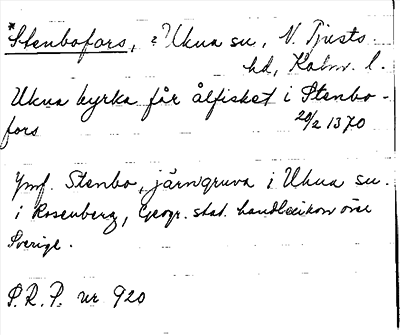 *Stenbofors, i Ukna sn, N. Tjusts
hd, Kalm. l.
Ukna kyrka får ålfisket i Stenbo-
fors 20/2 1370
Jmf. Stenbo, järngruva i Ukna sn.
i Rosenberg, Geogr. stat. handlexikon över
Sverige.
S.R.P. nr 920